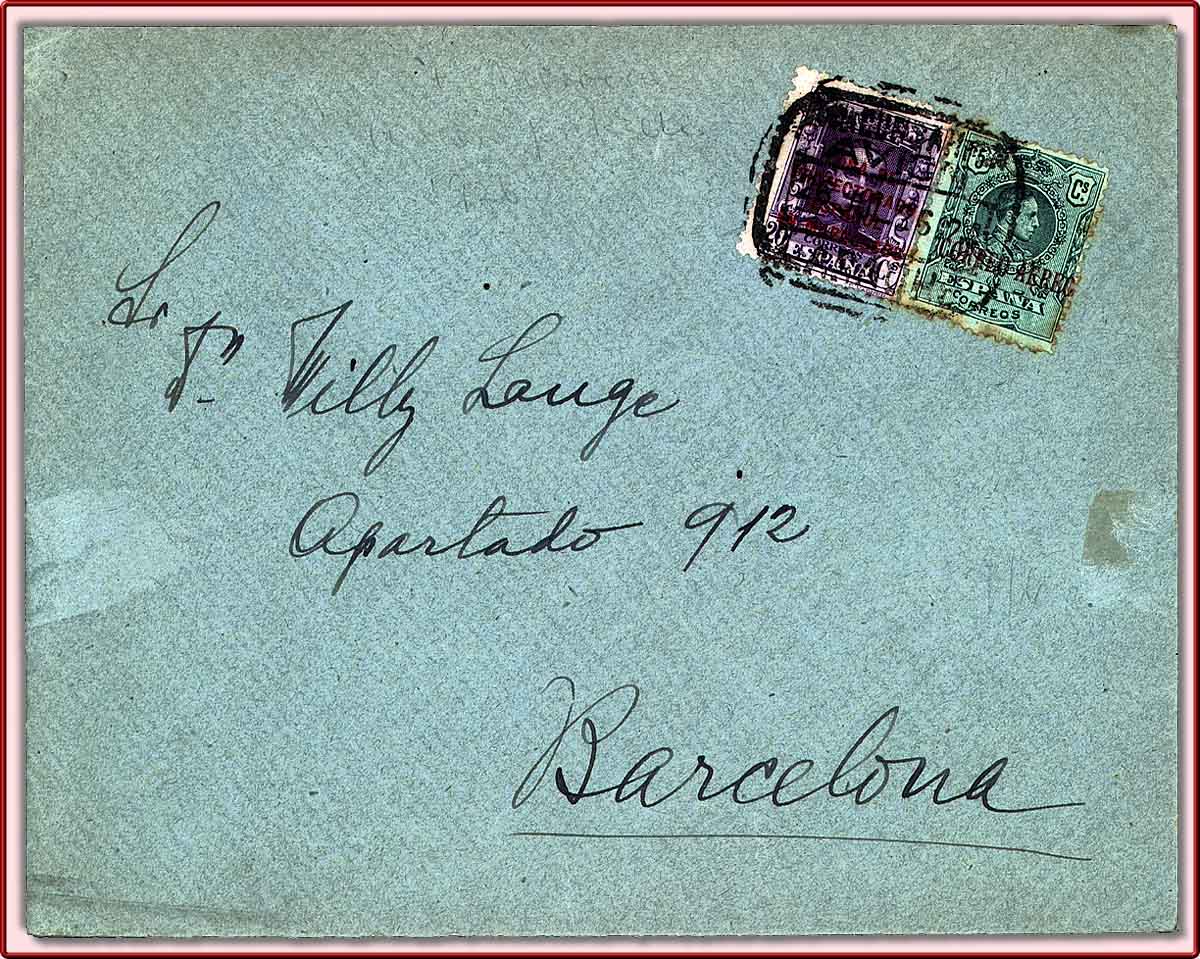 Sr
Dn. Willy Lange
Apartado 912
Barcelona
20 Cs
CORREOS
ESPAÑA
Cs
CORREO AEREO
ESPAÑA
CORREOS